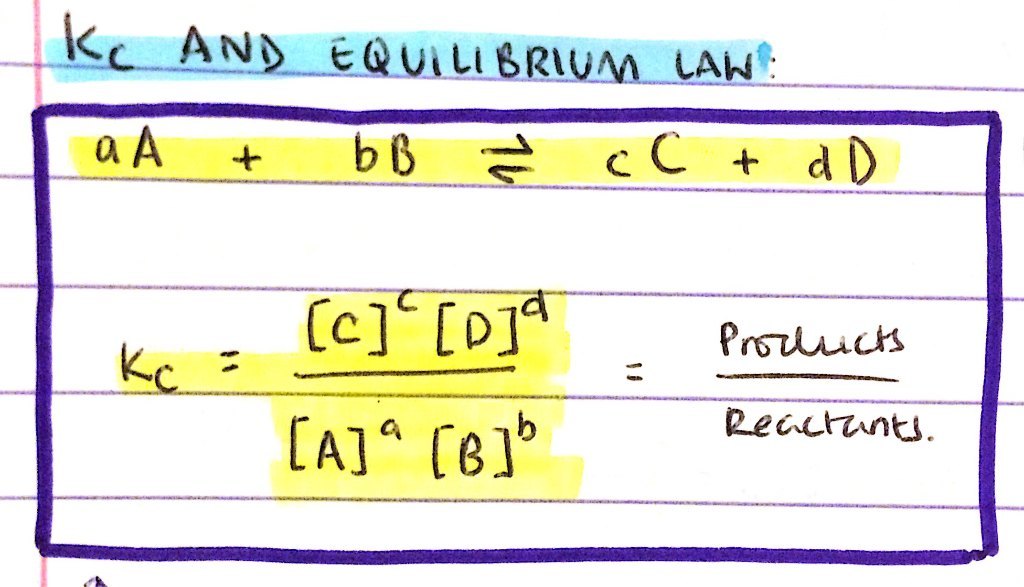 Kc AND EQUILIBRIUM LAW:
aA + bB ⇌ cC + dD
Kc = [C]^c [D]^d / [A]^a [B]^b = Products / Reactants.